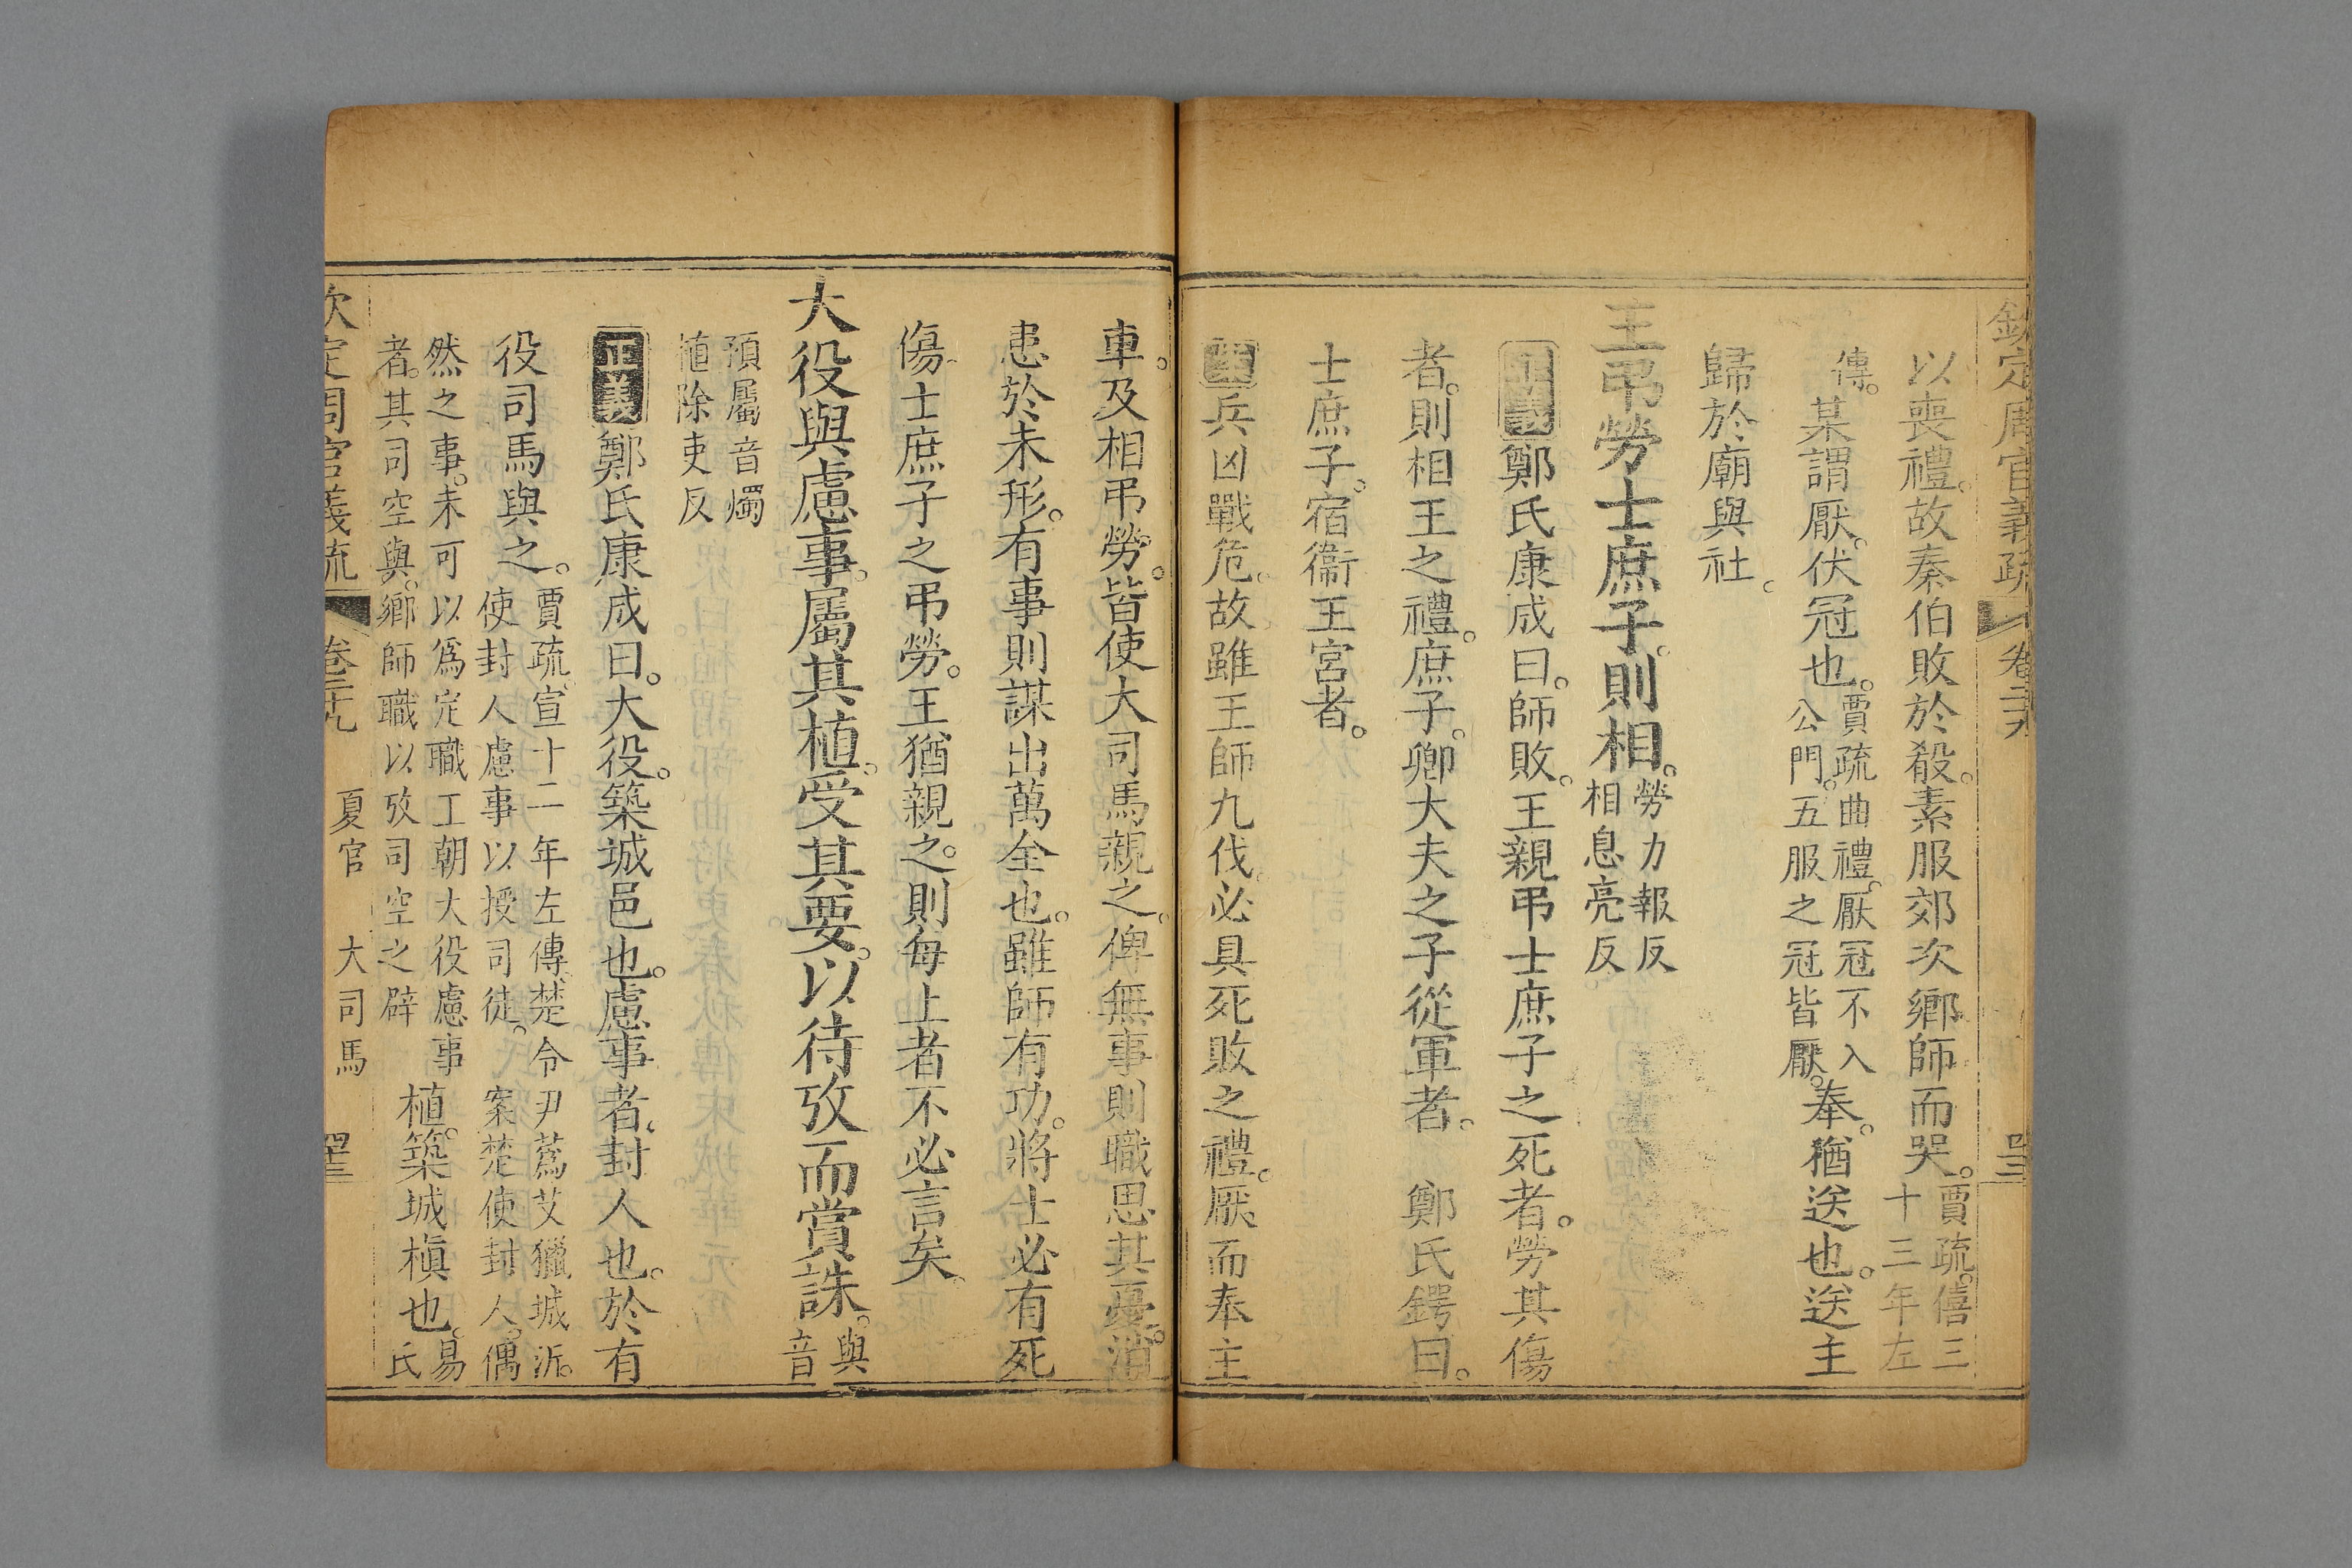 欽定周官義疏 卷二十九
以喪禮。故秦伯敗於殽。素服郊次。鄉師而哭。賈疏。僖三十三年左
傳。某謂厭。伏冠也。賈疏曲禮。厭冠不入公門。五服之冠皆厭。奉。猶送也。送主
歸於廟與社。
王弔勞士庶子。則相。勞力報反相息亮反
正義鄭氏康成曰。師敗。王親弔士庶子之死者。勞其傷
者。則相王之禮。庶子。卿大夫之子從軍者。 鄭氏鍔曰。
士庶子。宿衞王宮者。
兵凶戰危。故雖王師九伐。必具死敗之禮。厭而奉主
車。及相弔勞。皆使大司馬親之。俾無事則職思其憂。消
患於未形。有事則謀出萬全也。雖師有功。將士必有死
傷。士庶子之弔勞。王猶親之。則每上者不必言矣。
大役與慮事。屬其植。受其要。以待攷而賞誅。與音
預屬音燭植除吏反
正義鄭氏康成曰。大役。築城邑也。慮事者。封人也。於有
役司馬與之。賈疏。宣十二年左傳。楚令尹蒍艾獵城沂。使封人慮事以授司徒。案楚使封人。偶
然之事。未可以爲定職工朝大役慮事者。其司空與。鄉師職以攷司空之辟植。築城楨也。易氏
欽定周官義疏 卷二十九 夏官 大司馬